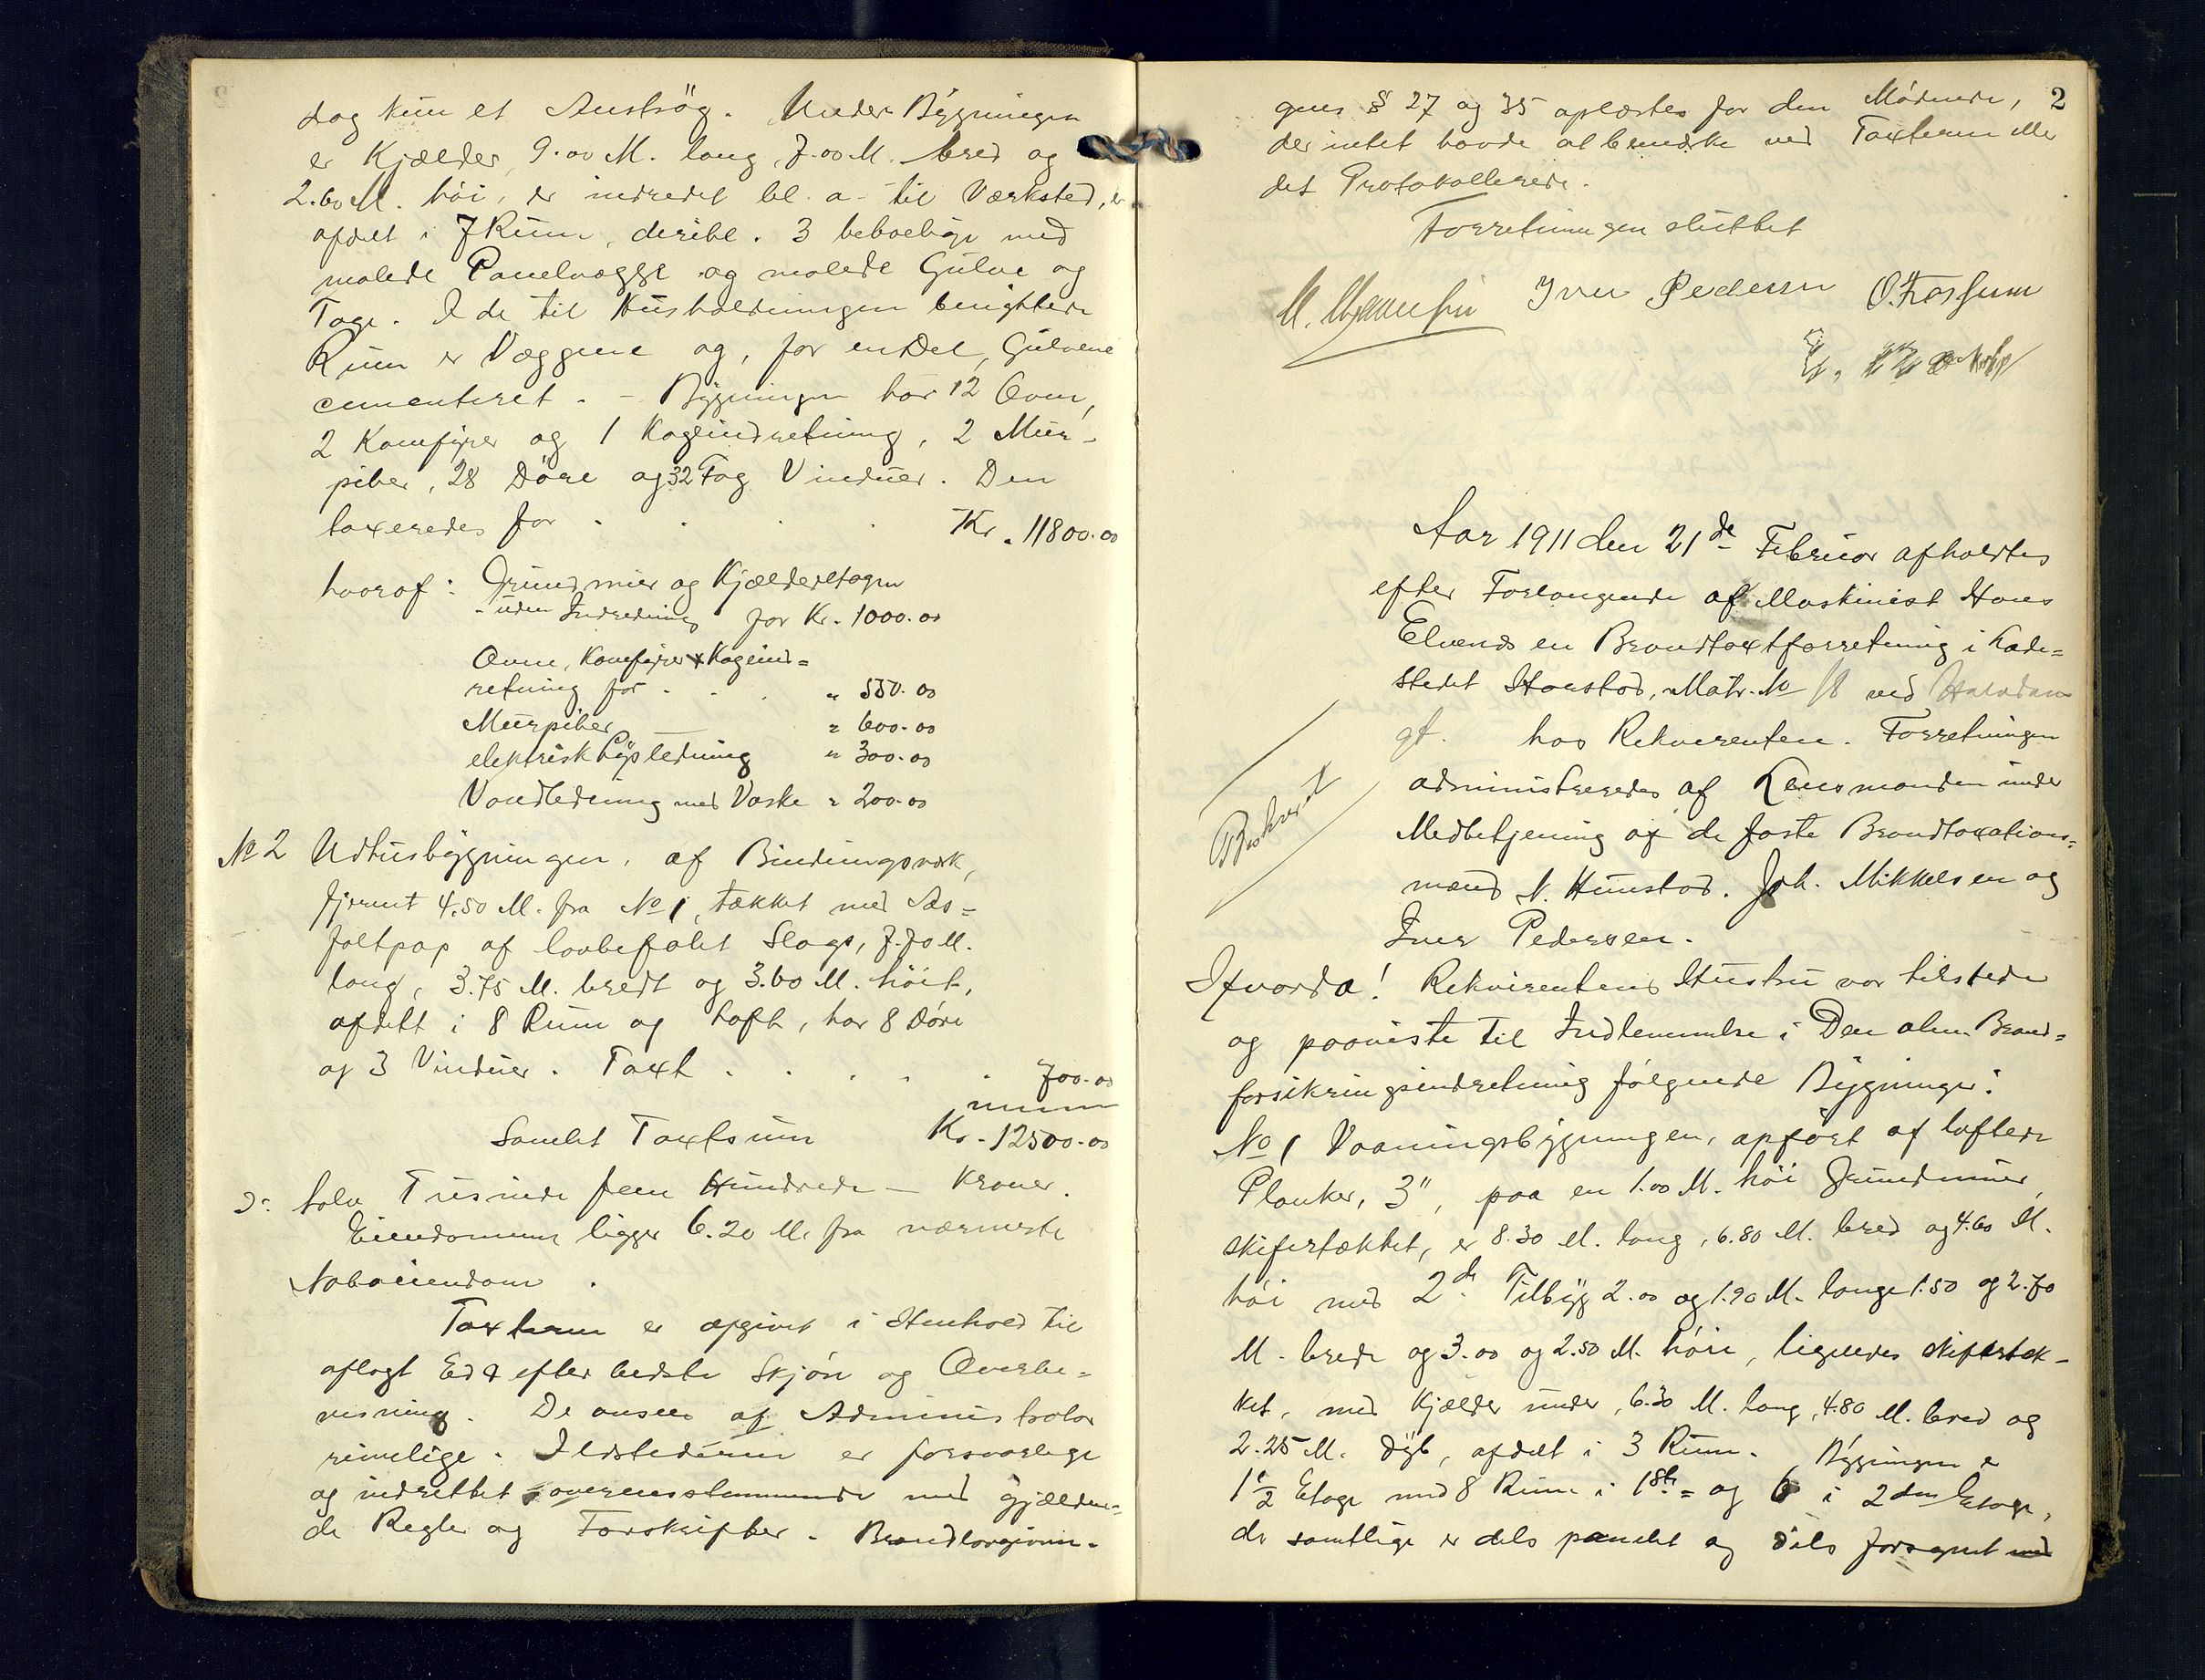 dog kun et Anströg. Under Bygningen
er Kjælder, 9.00 M. lang, 7.00 M. bred og
2.60 M. höi, er indredet bl. a. til Værksted, er
afdelt i 7 Rum, deribl. 3 beboelige med
malede Panelvægge og malede Gulve og
Tage. I de til Husholdningen benyttede
Rum er Væggene og, for en Del, Gulvene
cementeret. - Bygningen har 12 Ovne,
2 Komfyrer og 1 Kogeindretning, 2 Mur-
piber, 28 Döre og 32 Fag Vinduer. Den
taxeredes for . . . . Kr. 11800.00
hvoraf: Grundmur og Kjælderetagen
- uden Indredning for Kr. 1000.00
Ovne, Komfyrer & Kogeind=
retning for . . . " 550.00
Murpiber " 600.00
elektrisk Lysledning " 300.00
Vandledning med Vaske " 200.00
No 2 Udhusbygningen, af Bindingsværk,
fjernt 4.50 M. fra No 1, tækket med As=
faltpap af lovbefalet Slags, 7.70 M.
lang, 3.75 M. bredt og 3.60 M. höit,
afdelt i 8 Rum og Loft, har 8 Döre
og 3 Vinduer. Taxt . . . . . 700.00
Samlet Taxtsum Kr. 12500.00
ɔ: tolv Tusinde fem Hundrede - Kroner.
Eiendommen ligger 6.20 M. fra nærmeste
Naboeiendom.
Taxterne er afgivet i Henhold til
aflagt Ed & efter bedste Skjön og Overbe=
visning. De ansees af Administrator
rimelige. Ildstederne er forsvarlige
og indrettet overensstemmende med gjælden=
de Regler og Forskrifter. Brandlovgivnin-
2
gens § 27 og 35 oplæstes for den Mödende,
der intet havde at bemærke ved Taxterne eller
det Protokollerede.
Forretningen sluttet
Iver Pedersen O. Fossum
Aar 1911 den 21de Februar afholdtes
efter Forlangende af Maskinist Hans
Elvend en Brandtaxtforretning i Lade=
stedet Harstad, Matr. No 18 ved Halvdans
gt. hos Rekvirenten. Forretningen
administreredes af Lensmanden under
Medbetjening af de faste Brandtaxations=
mænd N. Hunstad, Joh. Mikkelsen og
Iver Pedersen.
Beskrevet
Hvorda! Rekvirentens Hustru var tilstede
og paaviste til Indlemmelse i Den alm. Brand=
forsikringsindretning fölgende Bygninger:
No 1 Vaaningsbygningen, opfört af laftede
Planker, 3", paa en 1.00 M. höi Grundmur,
skifertækket, er 8.30 M. lang, 6.80 M. bred og 4.60 M.
höi med 2de Tilbyg 2.00 og 1.90 M. lange 1.50 og 2.70
M. brede og 3.00 og 2.50 M. höie, ligeledes skifertæk-
ket, med Kjælder under, 6.30 M. lang, 4.80 M. bred og
2.25 M. dyb, afdelt i 3 Rum. Bygningen er
1 1/2 Etage med 8 Rum i 1ste = og 6 i 2den Etage,
de samtlige er dels panelet og dels forsynet med